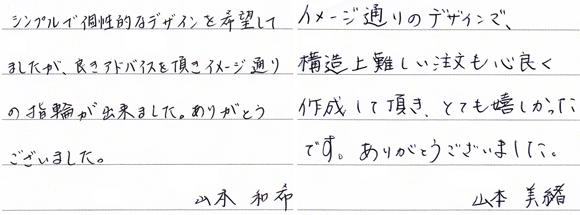 シンプルで個性的なデザインを希望して
ましたが、良きアドバイスを頂きイメージ通り
の指輪が出来ました。ありがとう
ございました。
山本 和希
イメージ通りのデザインで、
構造上難しい注文も心良く
作成して頂き、とても嬉しかった
です。ありがとうございました。
山本 美緒